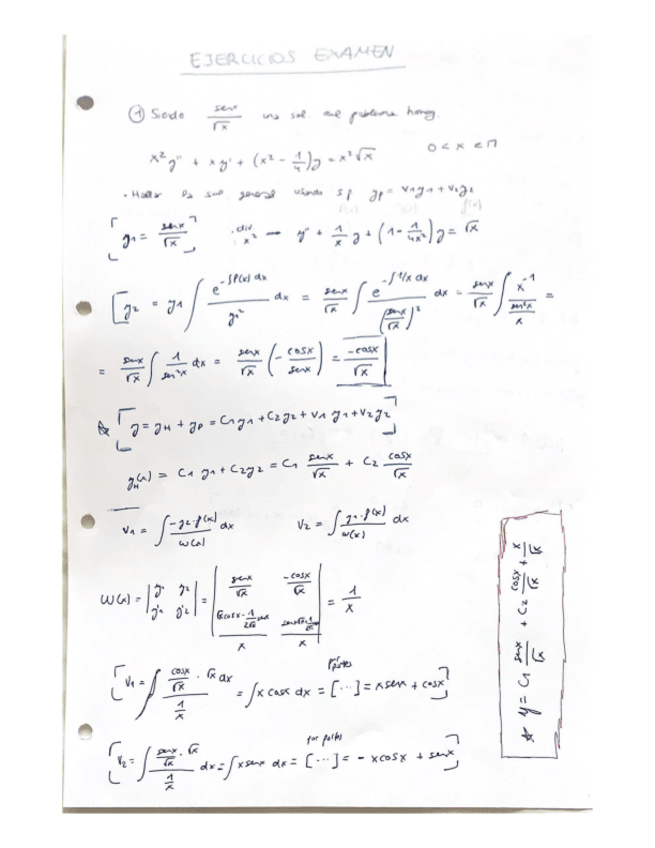 EJERCICIOS EXAMEN
① Siendo senx/√x una sol. del problema homog.
x²y'' + xy' + (x² - 1/4)y = x²√x 0 < x < π
• Hallar la sol general yp = v1y1 + v2y2
[y1 = senx/√x] div. x² → y'' + 1/x y + (1 - 1/4x²)y = √x
[y2 = y1 ∫ e^(-∫P(x)dx)/y1² dx = senx/√x ∫ e^(-∫1/x dx)/(senx/√x)² dx = senx/√x ∫ x^-1/(sen²x/x) =
= senx/√x ∫ 1/sen²x dx = senx/√x (-cosx/senx) = -cosx/√x]
☆ [y = yH + yP = C1y1 + C2y2 + v1y1 + v2y2]
yH(x) = C1y1 + C2y2 = C1 senx/√x + C2 cosx/√x
v1 = ∫ -y2·f(x)/w(x) dx v2 = ∫ y1·f(x)/w(x) dx
W(x) = |y1 y2 y'1 y'2| = |senx/√x -cosx/√x| = 1/x
[v1 = ∫ (cosx/√x · √x dx)/(1/x) = ∫x cosx dx = [...] = xsenx + cosx] por partes
[v2 = ∫ (senx/√x · √x)/(1/x) dx = ∫xsenx dx = [...] = -xcosx + senx] por partes
☆ y = C1 senx/√x + C2 cosx/√x + x/√x